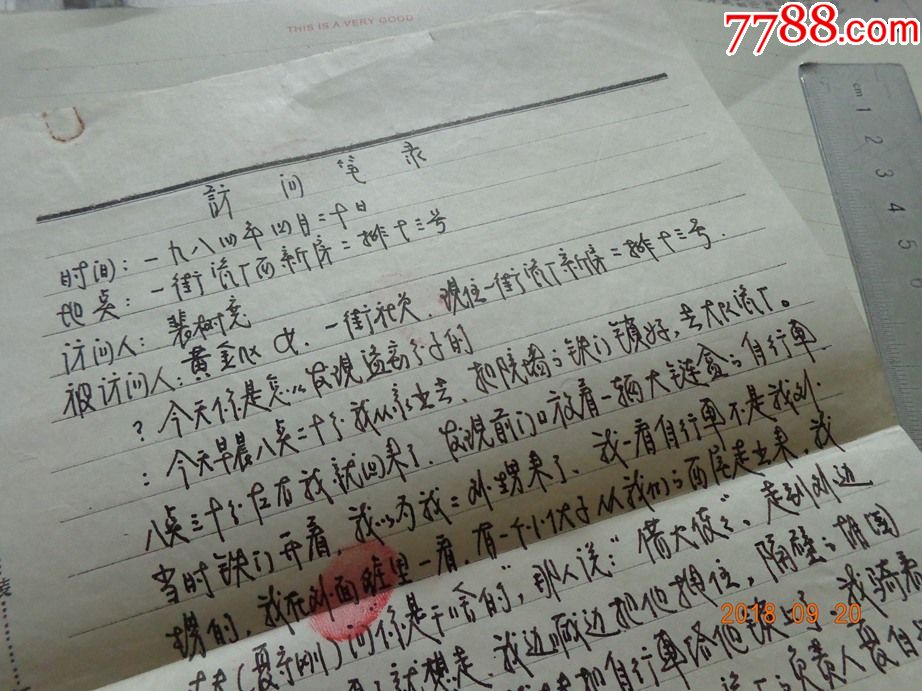 7788.com
THIS IS A VERY GOOD
cm 1 2 3 4 5 6
訪问笔录
时间：一九八四年四月二十日
地点：一街流厂西新房二排十三号
访问人：裴树
被访问人：黄金 女．一街社员．现住一街流厂新房二排十三号．
？今天你是怎么发现这 子的
：今天早晨八点二十分我从家出去．把院墙的铁门锁好，去大队流厂。
八点三十分左右我就回来了．发现前门口放着一辆大链盒的自行車
当时铁门开着，我以为我二外甥来了．我一看自行車不是我外
甥的，我在外面 里一看，有一个小伙子从我们的西屋走出来，我
问你是干啥的"，那人说："借大 "．走到外边
(夏 刚) 我边喊边把他抱住，隔壁的胡国
就想走 把自行車给他锁 了．我骑車
负责人
装
2018 09 20